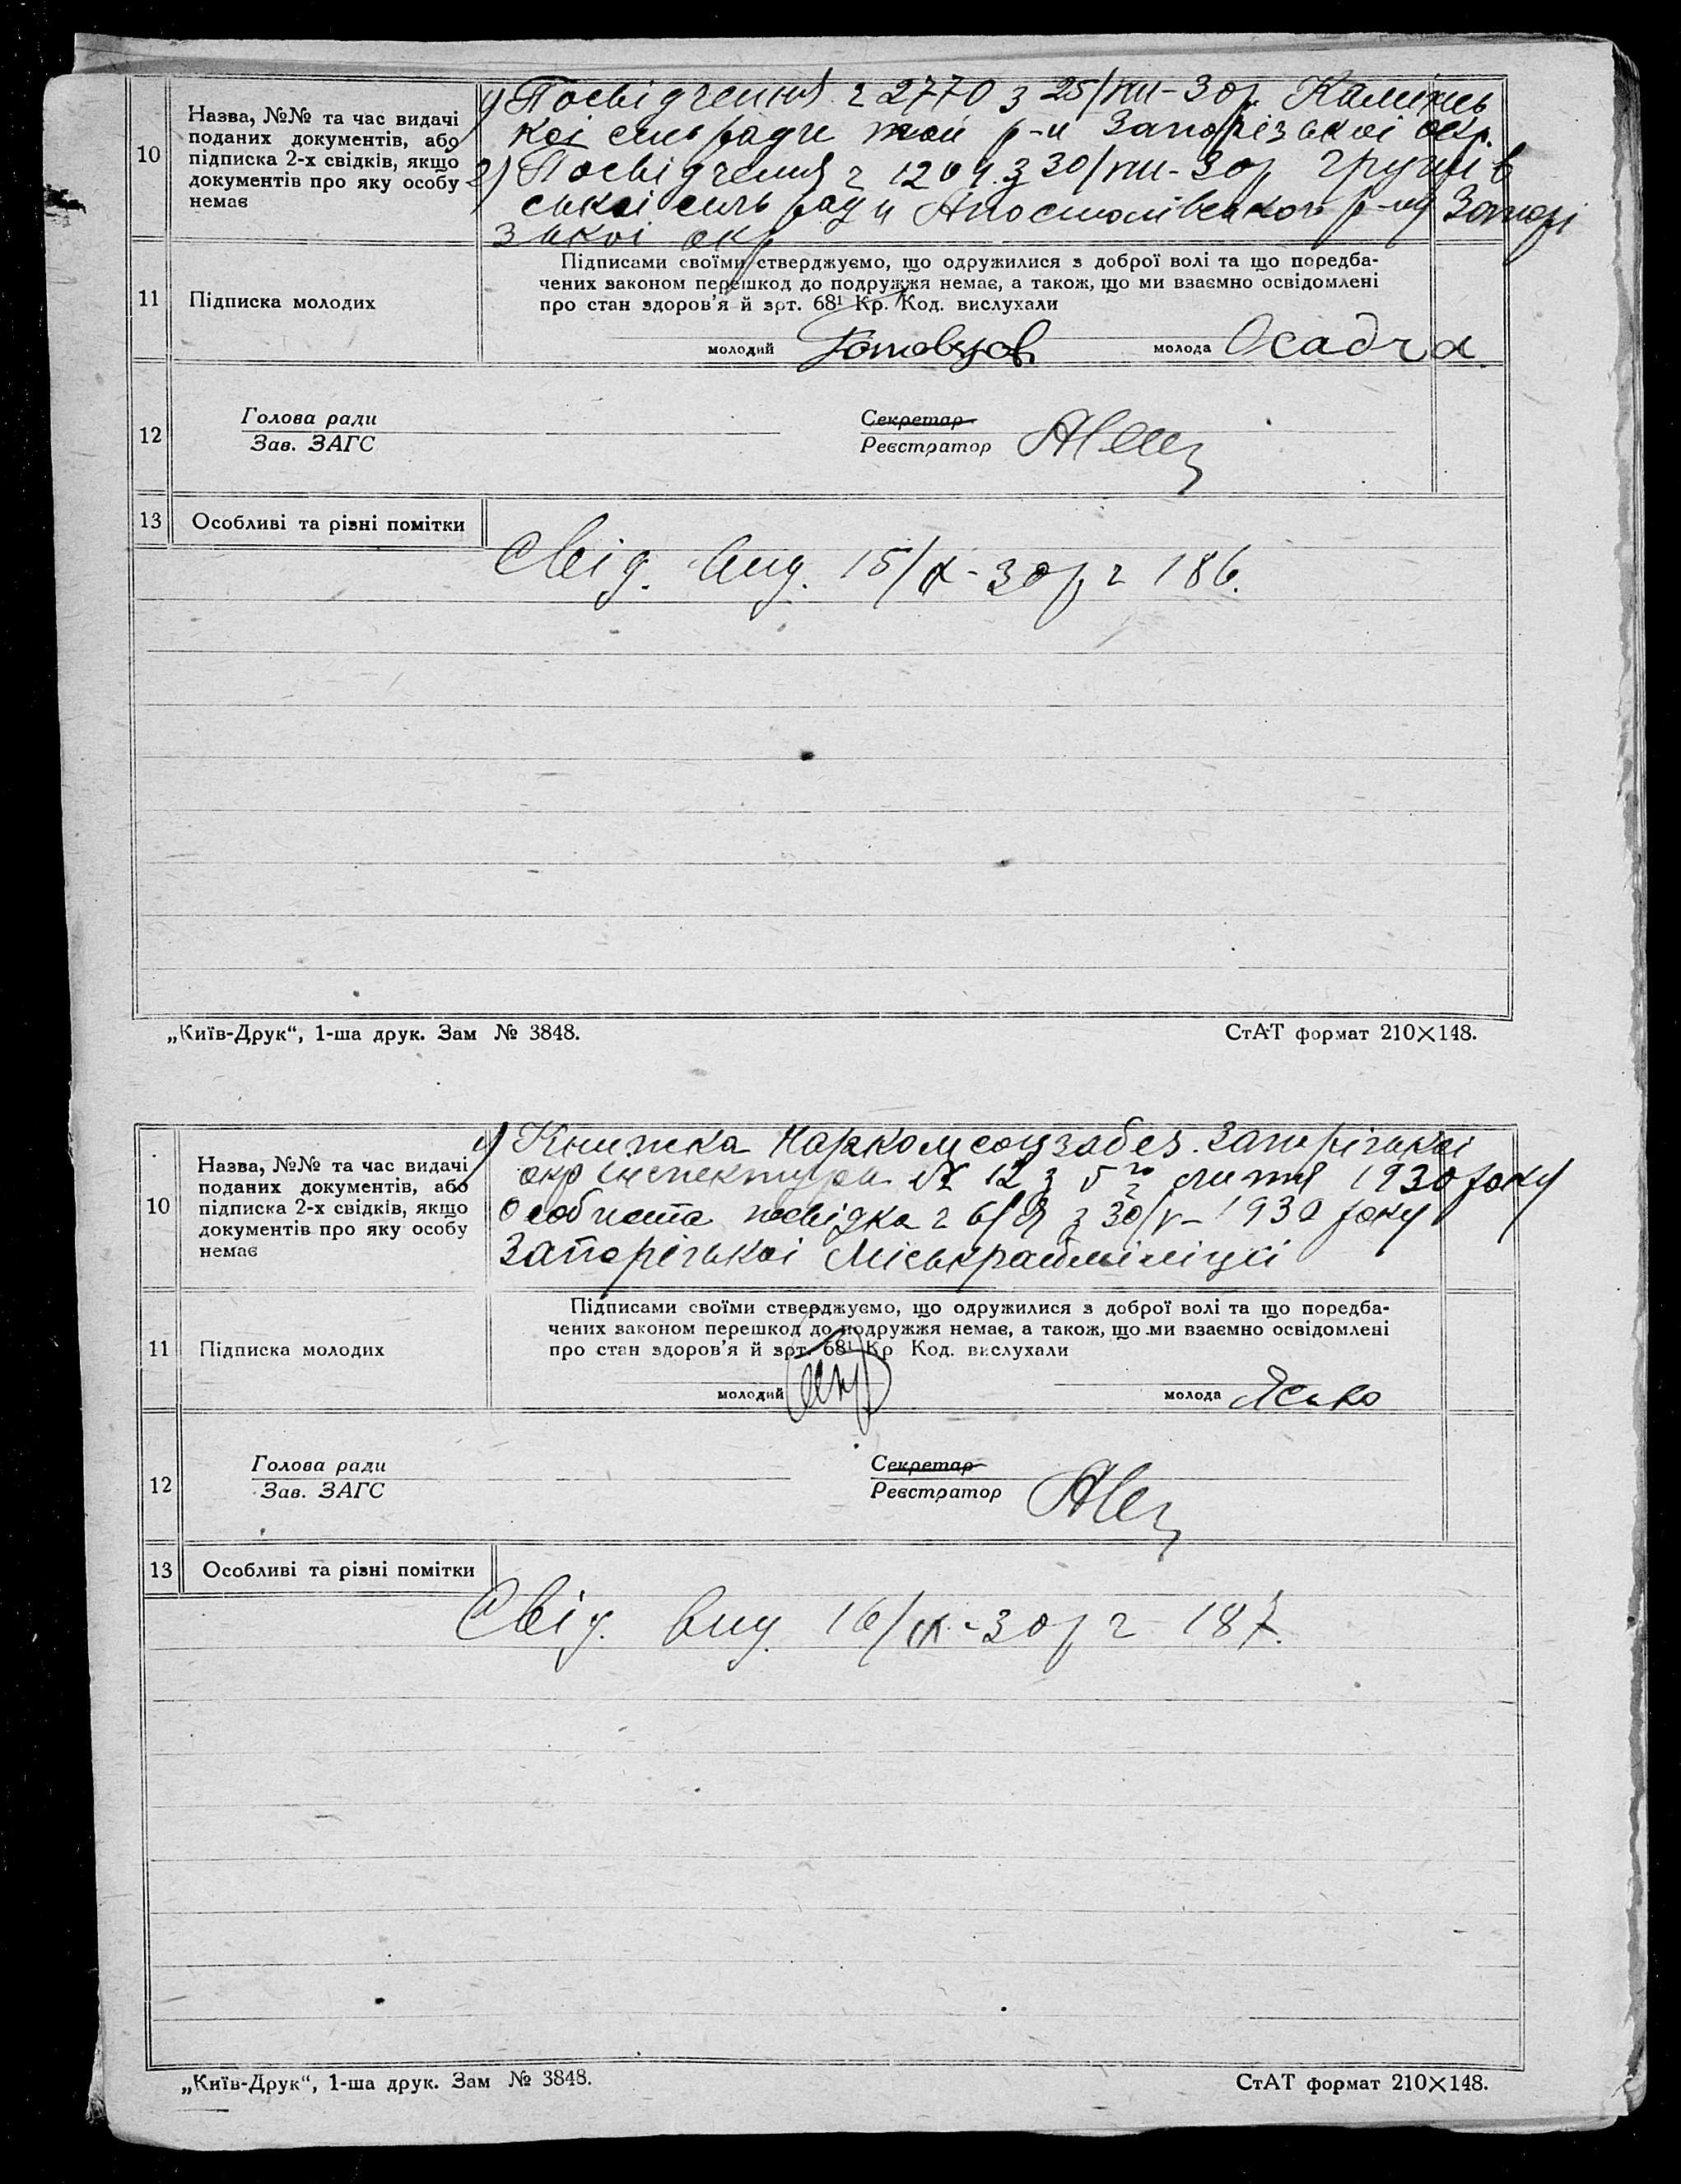 10
Назва, №№ та час видачі
поданих документів, або
підписка 2-х свідків, якщо
документів про яку особу
немає
1) Посвідчення ч 2770 з 25/VIII-30 р. Камінсь
кої сільради той р-н Запорізької окр.
2) Посвідчення ч 1204 з 30/VIII-30 р
ської сільради Апостолівського р-ну Запорі
зької окр
11
Підписка молодих
Підписами своїми стверджуємо, що одружилися з доброї волі та що поредба-
чених законом перешкод до подружжя немає, а також, що ми взаємно освідомлені
про стан здоров'я й арт. 68¹ Кр. Код. вислухали
молодий молода Осадча
12
Голова ради Секретар
Зав. ЗАГС Реєстратор
13
Особливі та різні помітки
Свід. вид. 15/IX-30 р ч 186.
„Київ-Друк“, 1-ша друк. Зам № 3848. СтАТ формат 210×148.
10
Назва, №№ та час видачі
поданих документів, або
підписка 2-х свідків, якщо
документів про яку особу
немає
1) Книжка Наркомсоцзабез. Запорізької
окр інспектури № 12 з 5го 1930 року
2) Особиста посвідка ч з 30/V-1930 року
Запорізької Міськрайміліції
11
Підписка молодих
Підписами своїми стверджуємо, що одружилися з доброї волі та що поредба-
чених законом перешкод до подружжя немає, а також, що ми взаємно освідомлені
про стан здоров'я й арт. 68¹ Кр Код. вислухали
молодий молода Ясько
12
Голова ради Секретар
Зав. ЗАГС Реєстратор
13
Особливі та різні помітки
Свід. вид. 16/IX-30 р ч 187.
„Київ-Друк“, 1-ша друк. Зам № 3848. СтАТ формат 210×148.